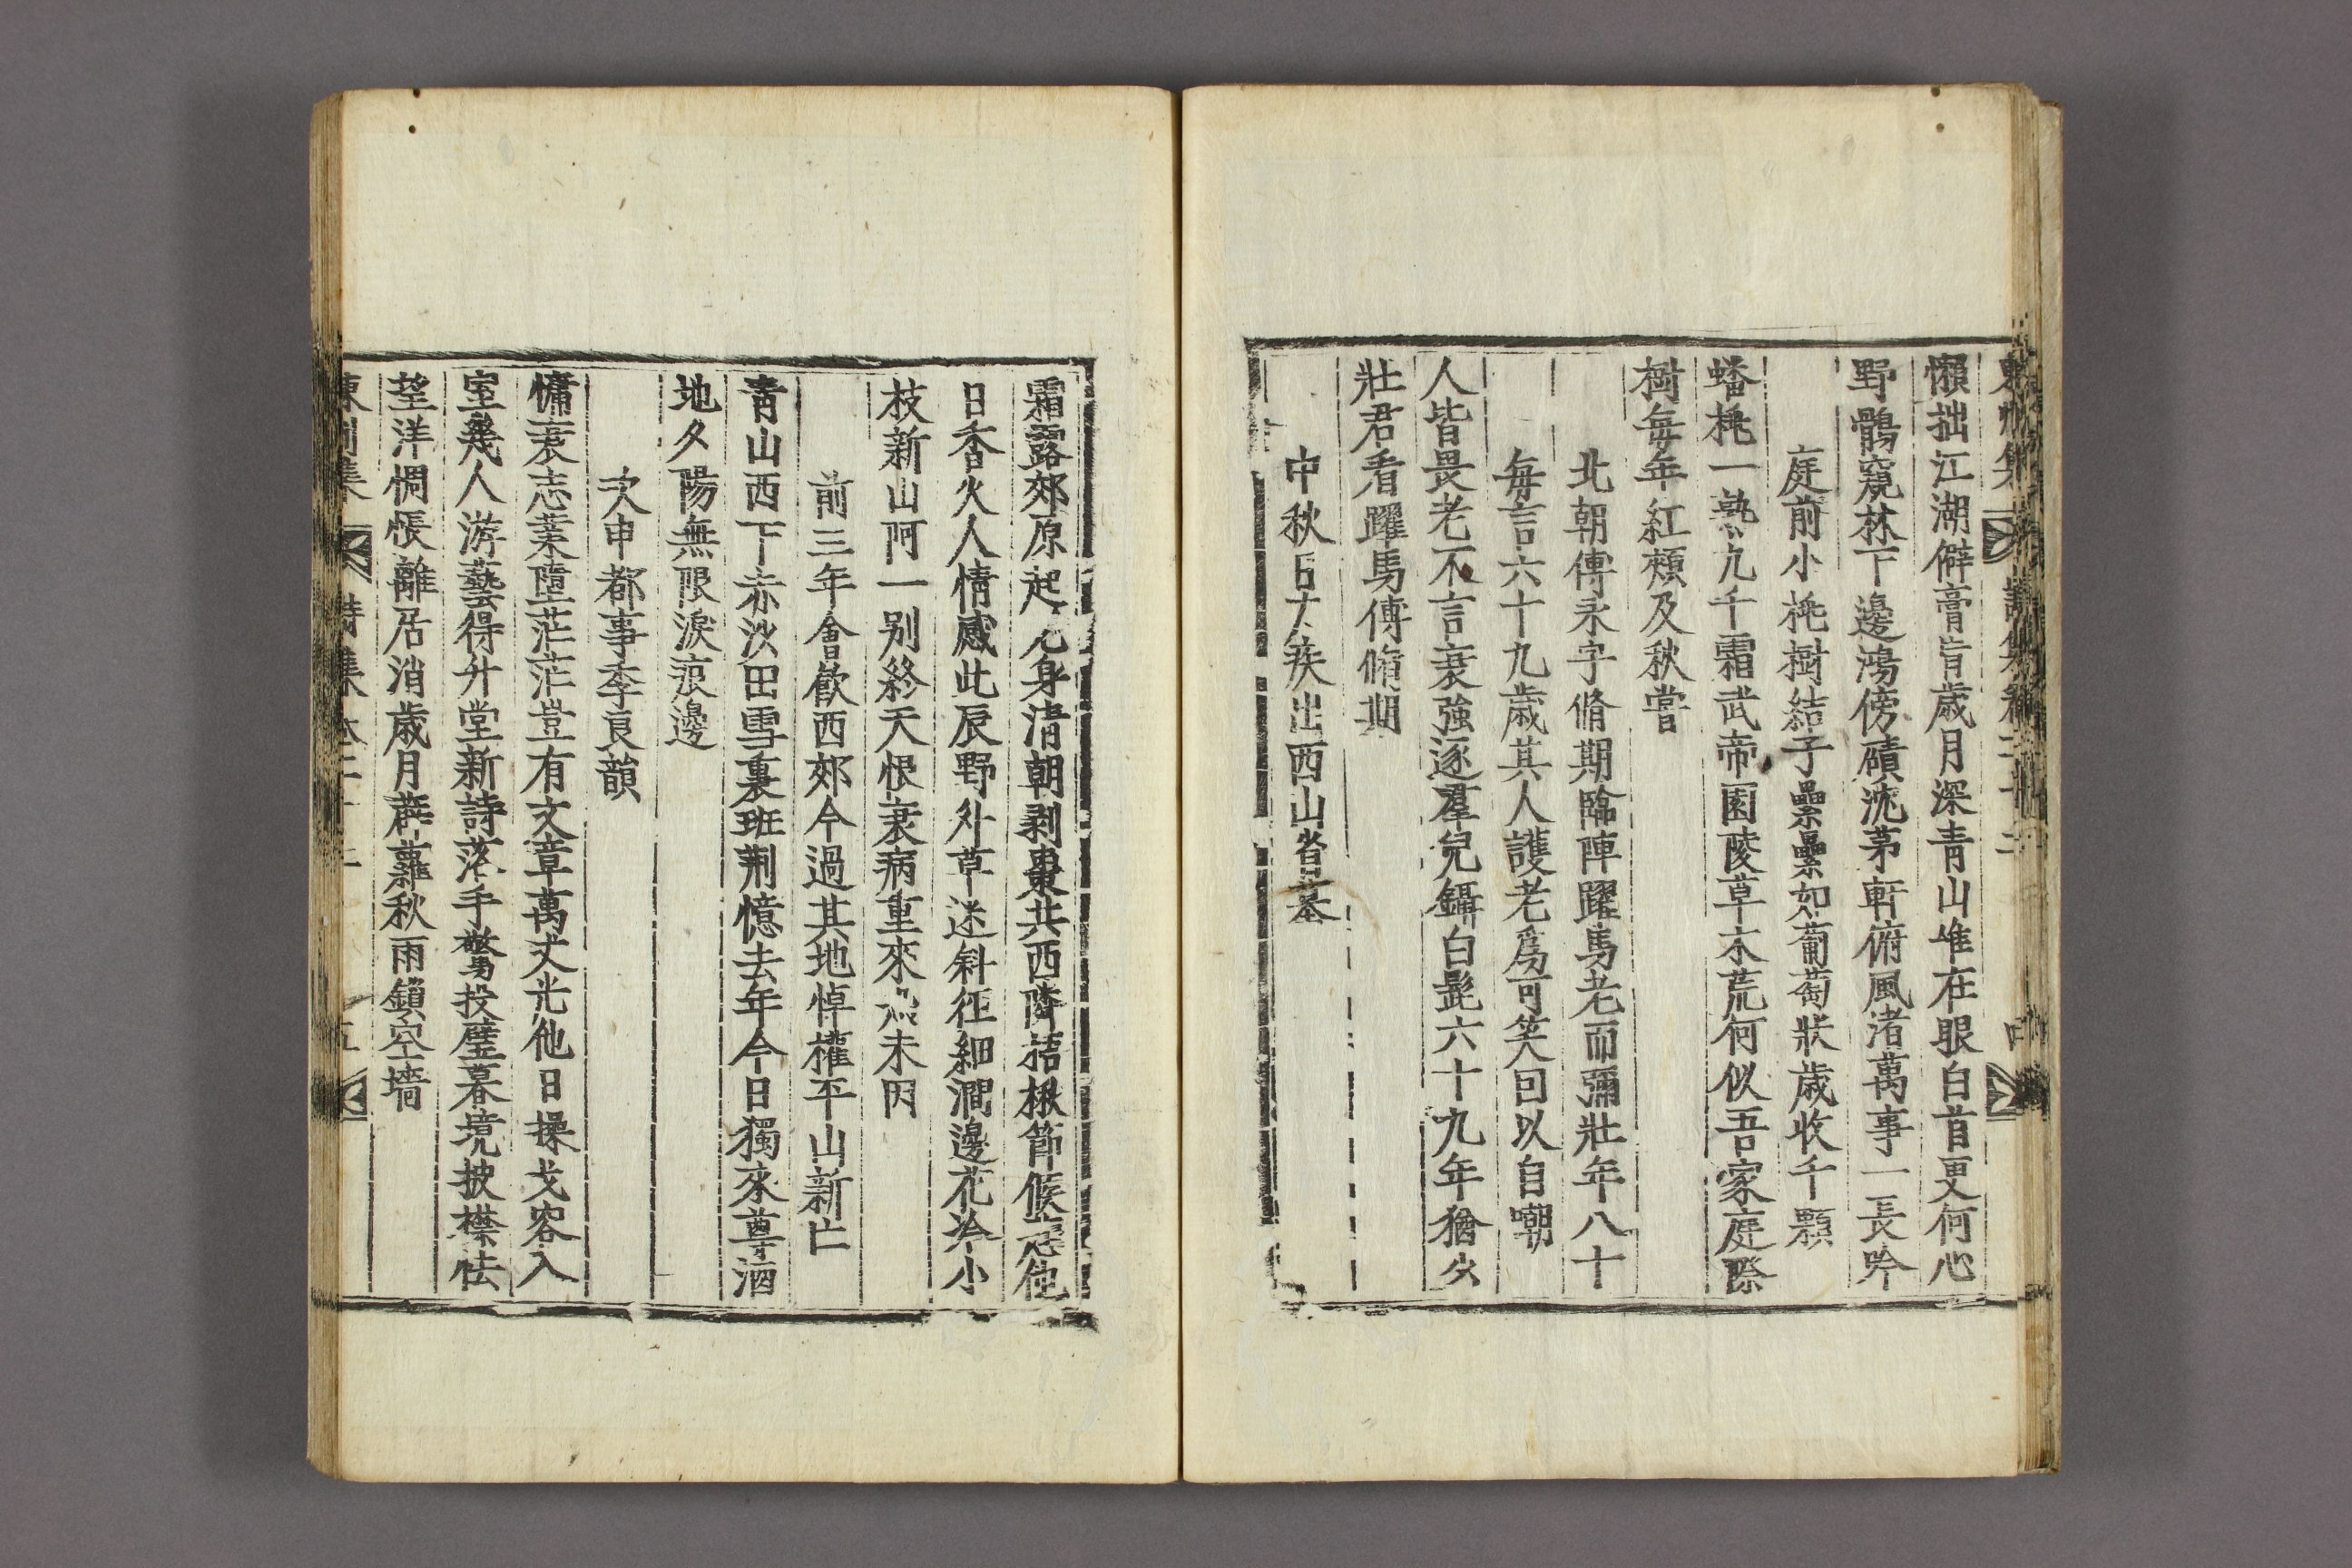 懶拙江湖僻膏肓歲月深靑山唯在眼白首更何心
野鶻窺林下邊鴻傍磧沈茅軒俯風渚萬事一長吟
庭前小桃樹結子纍纍如葡萄狀歲收千顆
蟠桃一熟九千霜武帝園陵草木荒何似吾家庭際
樹每年紅顆及秋嘗
北朝傅永字脩期臨陣躍馬老而彌壯年八十
每言六十九歲其人護老爲可笑因以自嘲
人皆畏老不言衰強逐羣兒鑷白髭六十九年猶少
壯君看躍馬傅脩期
中秋日力疾出西山省墓
霜露郊原起 身淸朝剥棗共西隣拮楸節候 他
日香火人情感此辰野外草迷斜徑細澗邊花冷小
枝新山阿一別終天恨衰病重來 未 
前三年會飮西郊今過其地悼權平山新亡
靑山西下赤沙田雪裏班荊憶去年今日獨來尊酒
地夕陽無限淚痕邊
次申都事季良韻
慵衰志業墮茫茫豈有文章萬丈光他日操戈容入
室幾人游藝得升堂新詩落手驚投璧暮境披襟怯
望洋惆悵離居消歲月薜蘿秋雨鎖空墻
東州集 詩集卷二十二 五